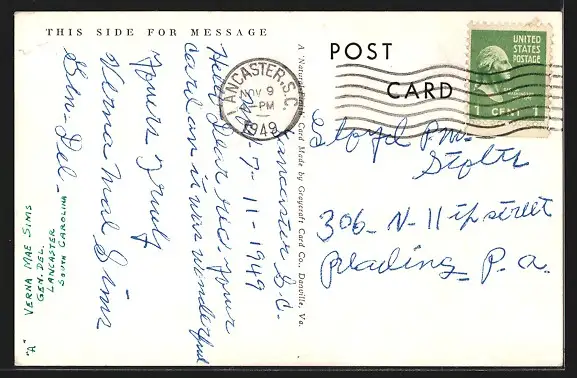 THIS SIDE FOR MESSAGE
Lancaster S.C.
7-11-1949
Hello Dear rec your
card an it was wonderful
Yours Truly
Verna Mae Sims
Gen-Del-
VERNA MAE SIMS
GEN. DEL.
LANCASTER
SOUTH CAROLINA
"A"
A "Natural Finish" Card Made by Graycraft Card Co., Danville, Va.
POST
CARD
LANCASTER, S.C.
NOV 9
PM
1949
UNITED
STATES
POSTAGE
1 CENT 1
Stoltz
306-N-11 th street
Reading P.a.